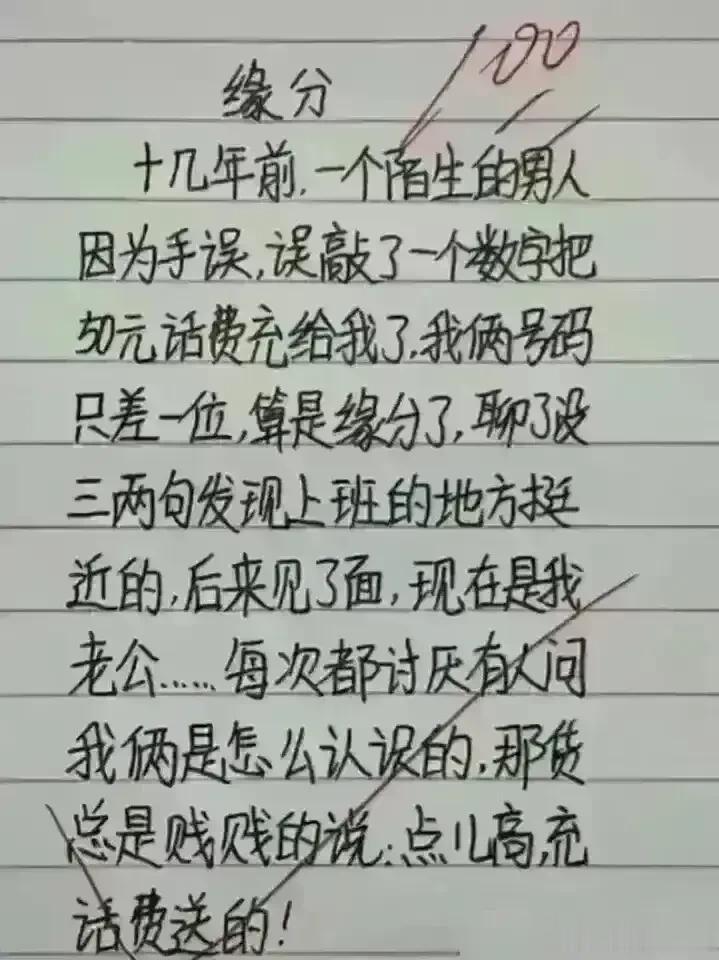 100
缘分
十几年前.一个陌生的男人
因为手误,误敲了一个数字把
50元话费充给我了.我俩号码
只差一位,算是缘分了,聊了没
三两句发现上班的地方挺
近的,后来见了面,现在是我
老公……每次都讨厌有人问
我俩是怎么认识的,那货
总是贱贱的说:点儿高,充
话费送的!